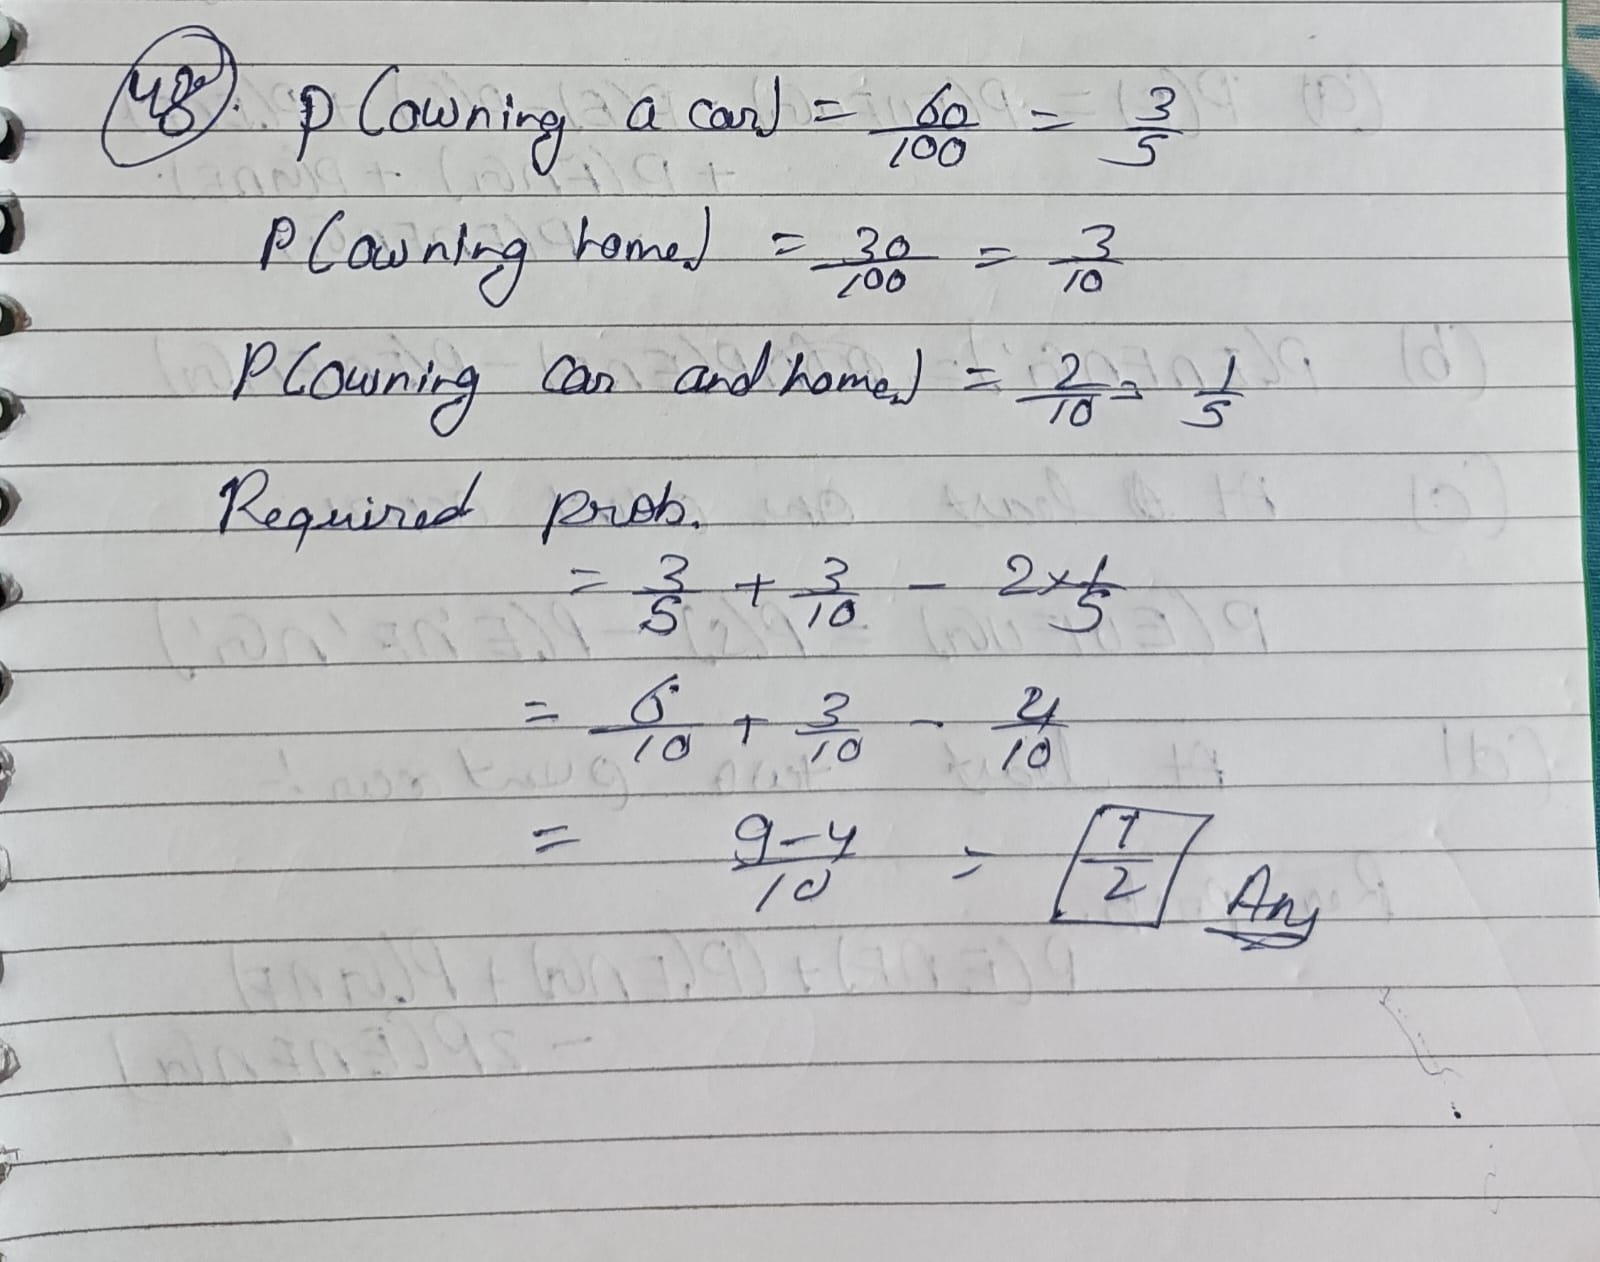 48. P(owning a car) = 60/100 = 3/5
P(owning home) = 30/100 = 3/10
P(owning car and home) = 2/10 = 1/5
Required prob.
= 3/5 + 3/10 - 2×1/5
= 6/10 + 3/10 - 4/10
= 9-4/10 = 1/2 Ans